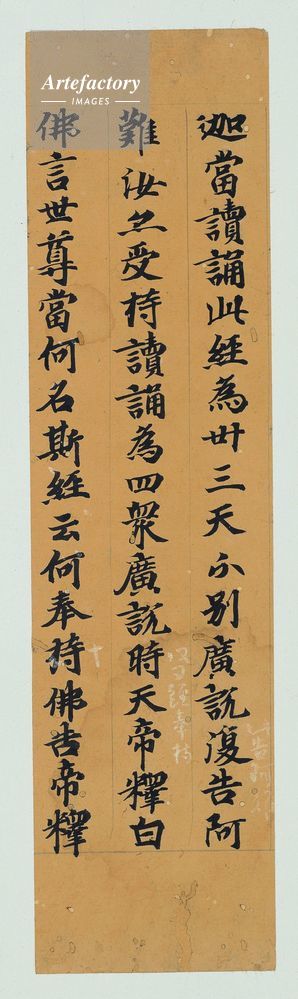 Artefactory
IMAGES
迦當讀誦此經為卅三天分別廣說復告阿
難汝亦受持讀誦為四眾廣說時天帝釋白
佛言世尊當何名斯經云何奉持佛告帝釋